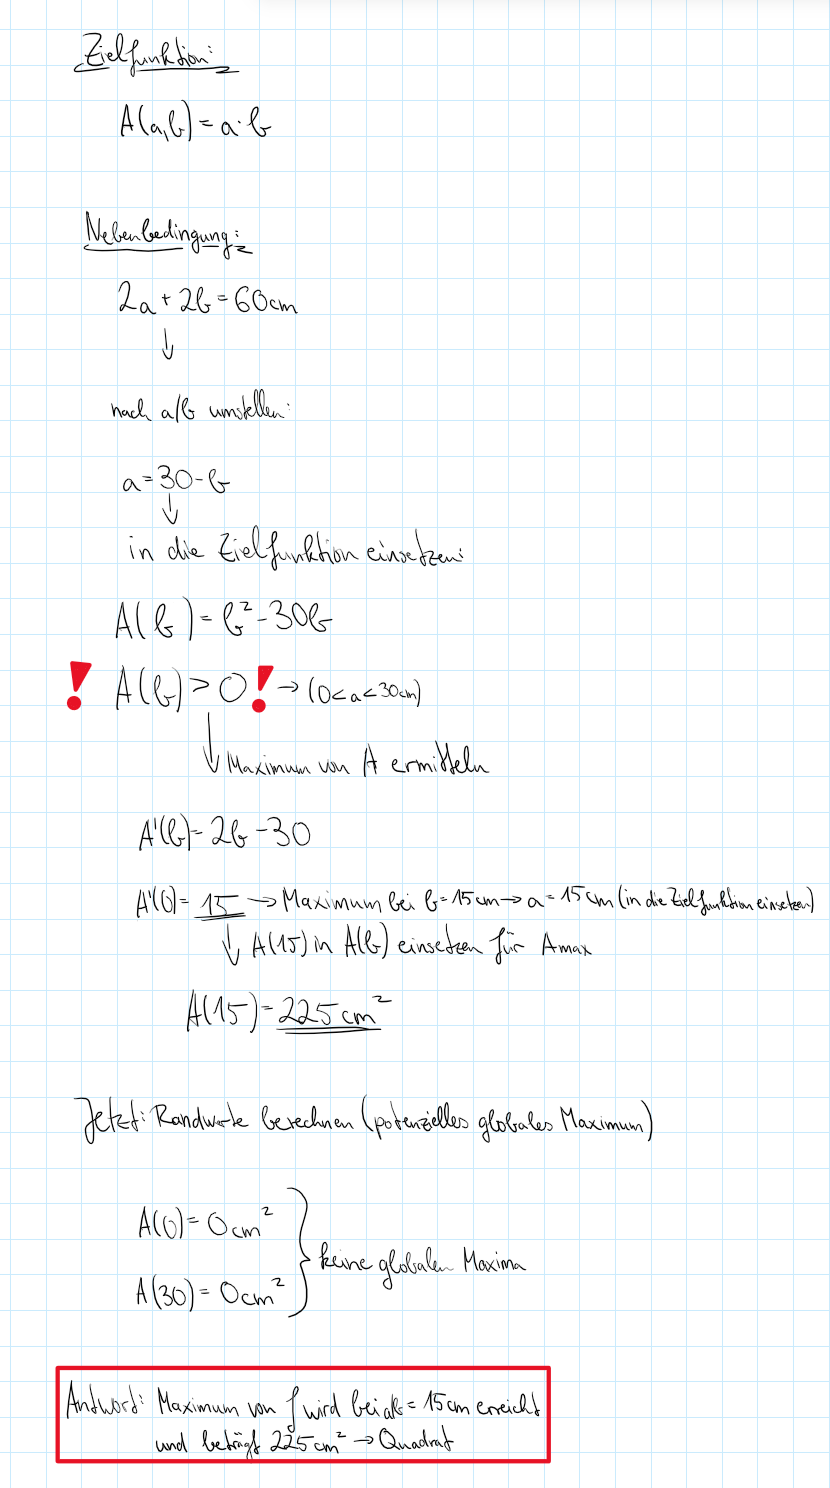 Zielfunktion:
A(a,b) = a·b
Nebenbedingung:
2a + 2b = 60cm
↓
nach a/b umstellen:
a = 30 - b
↓
in die Zielfunktion einsetzen:
A(b) = b² - 30b
! A(b) > 0 ! → (0 < a < 30cm)
↓ Maximum von A ermitteln
A'(b) = 2b - 30
A'(0) = 15 → Maximum bei b = 15cm → a = 15cm (in die Zielfunktion einsetzen)
↓ A(15) in A(b) einsetzen für Amax
A(15) = 225cm²
Jetzt: Randwerte berechnen (potenzielles globales Maximum)
A(0) = 0cm²
A(30) = 0cm²
} keine globalen Maxima
Antwort: Maximum von f wird bei a/b = 15cm erreicht
und beträgt 225cm² → Quadrat